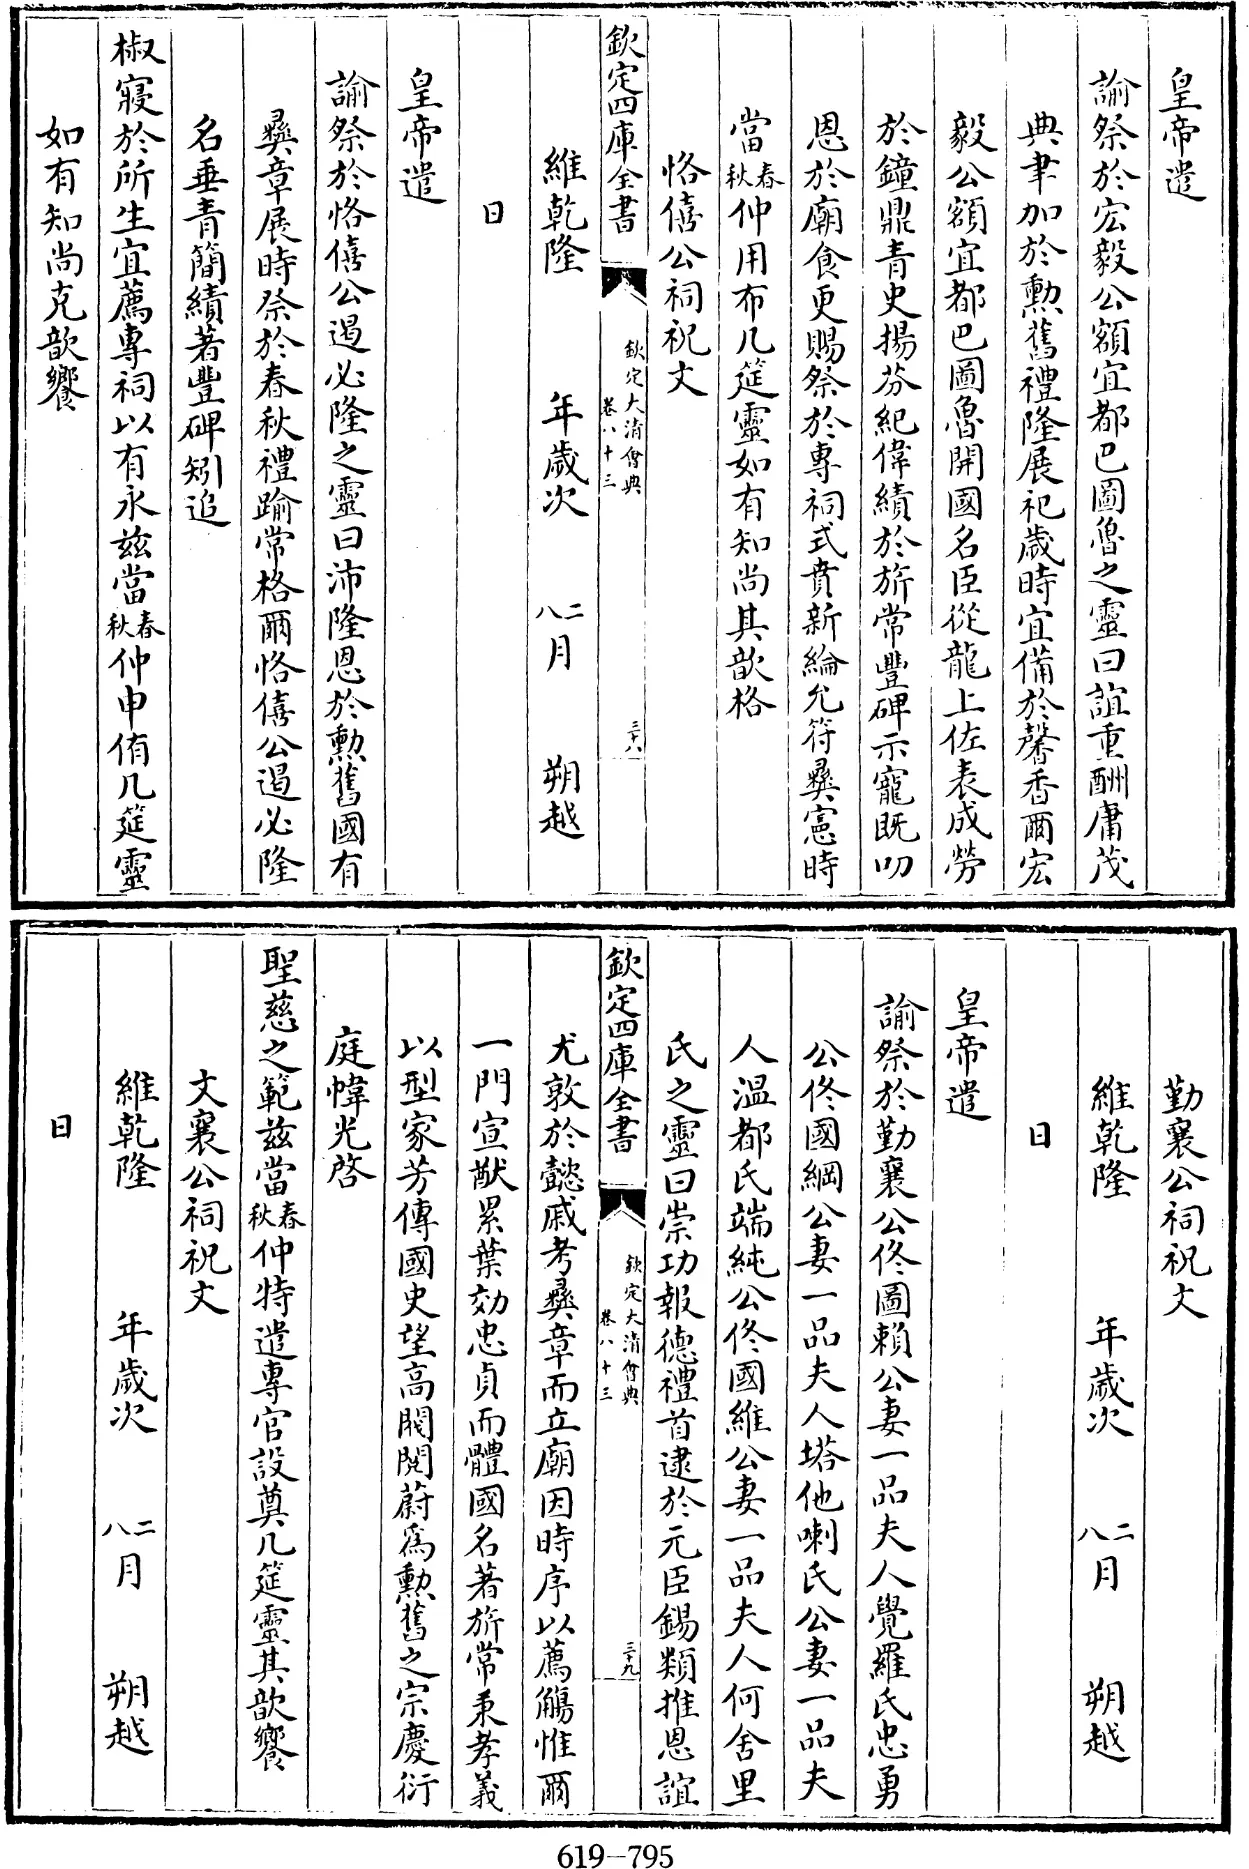 皇帝遣
諭祭於宏毅公額宜都巴圖魯之靈曰誼重酬庸茂
典聿加於勲舊禮隆展祀歲時宜備於馨香爾宏
毅公額宜都巴圖魯開國名臣從龍上佐表成勞
於鐘鼎青史揚芬紀偉績於旂常豐碑示寵既叨
恩於廟食更賜祭於專祠式賁新綸允符彛憲時
當春秋仲用布几筵靈如有知尚其歆格
恪僖公祠祝文
欽定四庫全書
欽定大清㑹典
卷八十三
三十八
維乾隆 年歲次 二八月 朔越
日
皇帝遣
諭祭於恪僖公遏必隆之靈曰沛隆恩於勲舊國有
彛章展時祭於春秋禮踰常格爾恪僖公遏必隆
名垂青簡績著豐碑矧追
椒寢於所生宜薦專祠以有永兹當春秋仲申侑几筵靈
如有知尚克歆饗
勤襄公祠祝文
維乾隆 年歲次 二八月 朔越
日
皇帝遣
諭祭於勤襄公佟圖賴公妻一品夫人覺羅氏忠勇
公佟國綱公妻一品夫人塔他喇氏公妻一品夫
人温都氏端純公佟國維公妻一品夫人何舍里
氏之靈曰崇功報德禮首逮於元臣錫類推恩誼
欽定四庫全書
欽定大清㑹典
卷八十三
三十九
尤敦於懿戚考彛章而立廟因時序以薦觴惟爾
一門宣猷累葉効忠貞而體國名著旂常秉孝義
以型家芳傳國史望高閥閱蔚為勲舊之宗慶衍
庭幃光啓
聖慈之範兹當春秋仲特遣專官設奠几筵靈其歆饗
文襄公祠祝文
維乾隆 年歲次 二八月 朔越
日
619-795